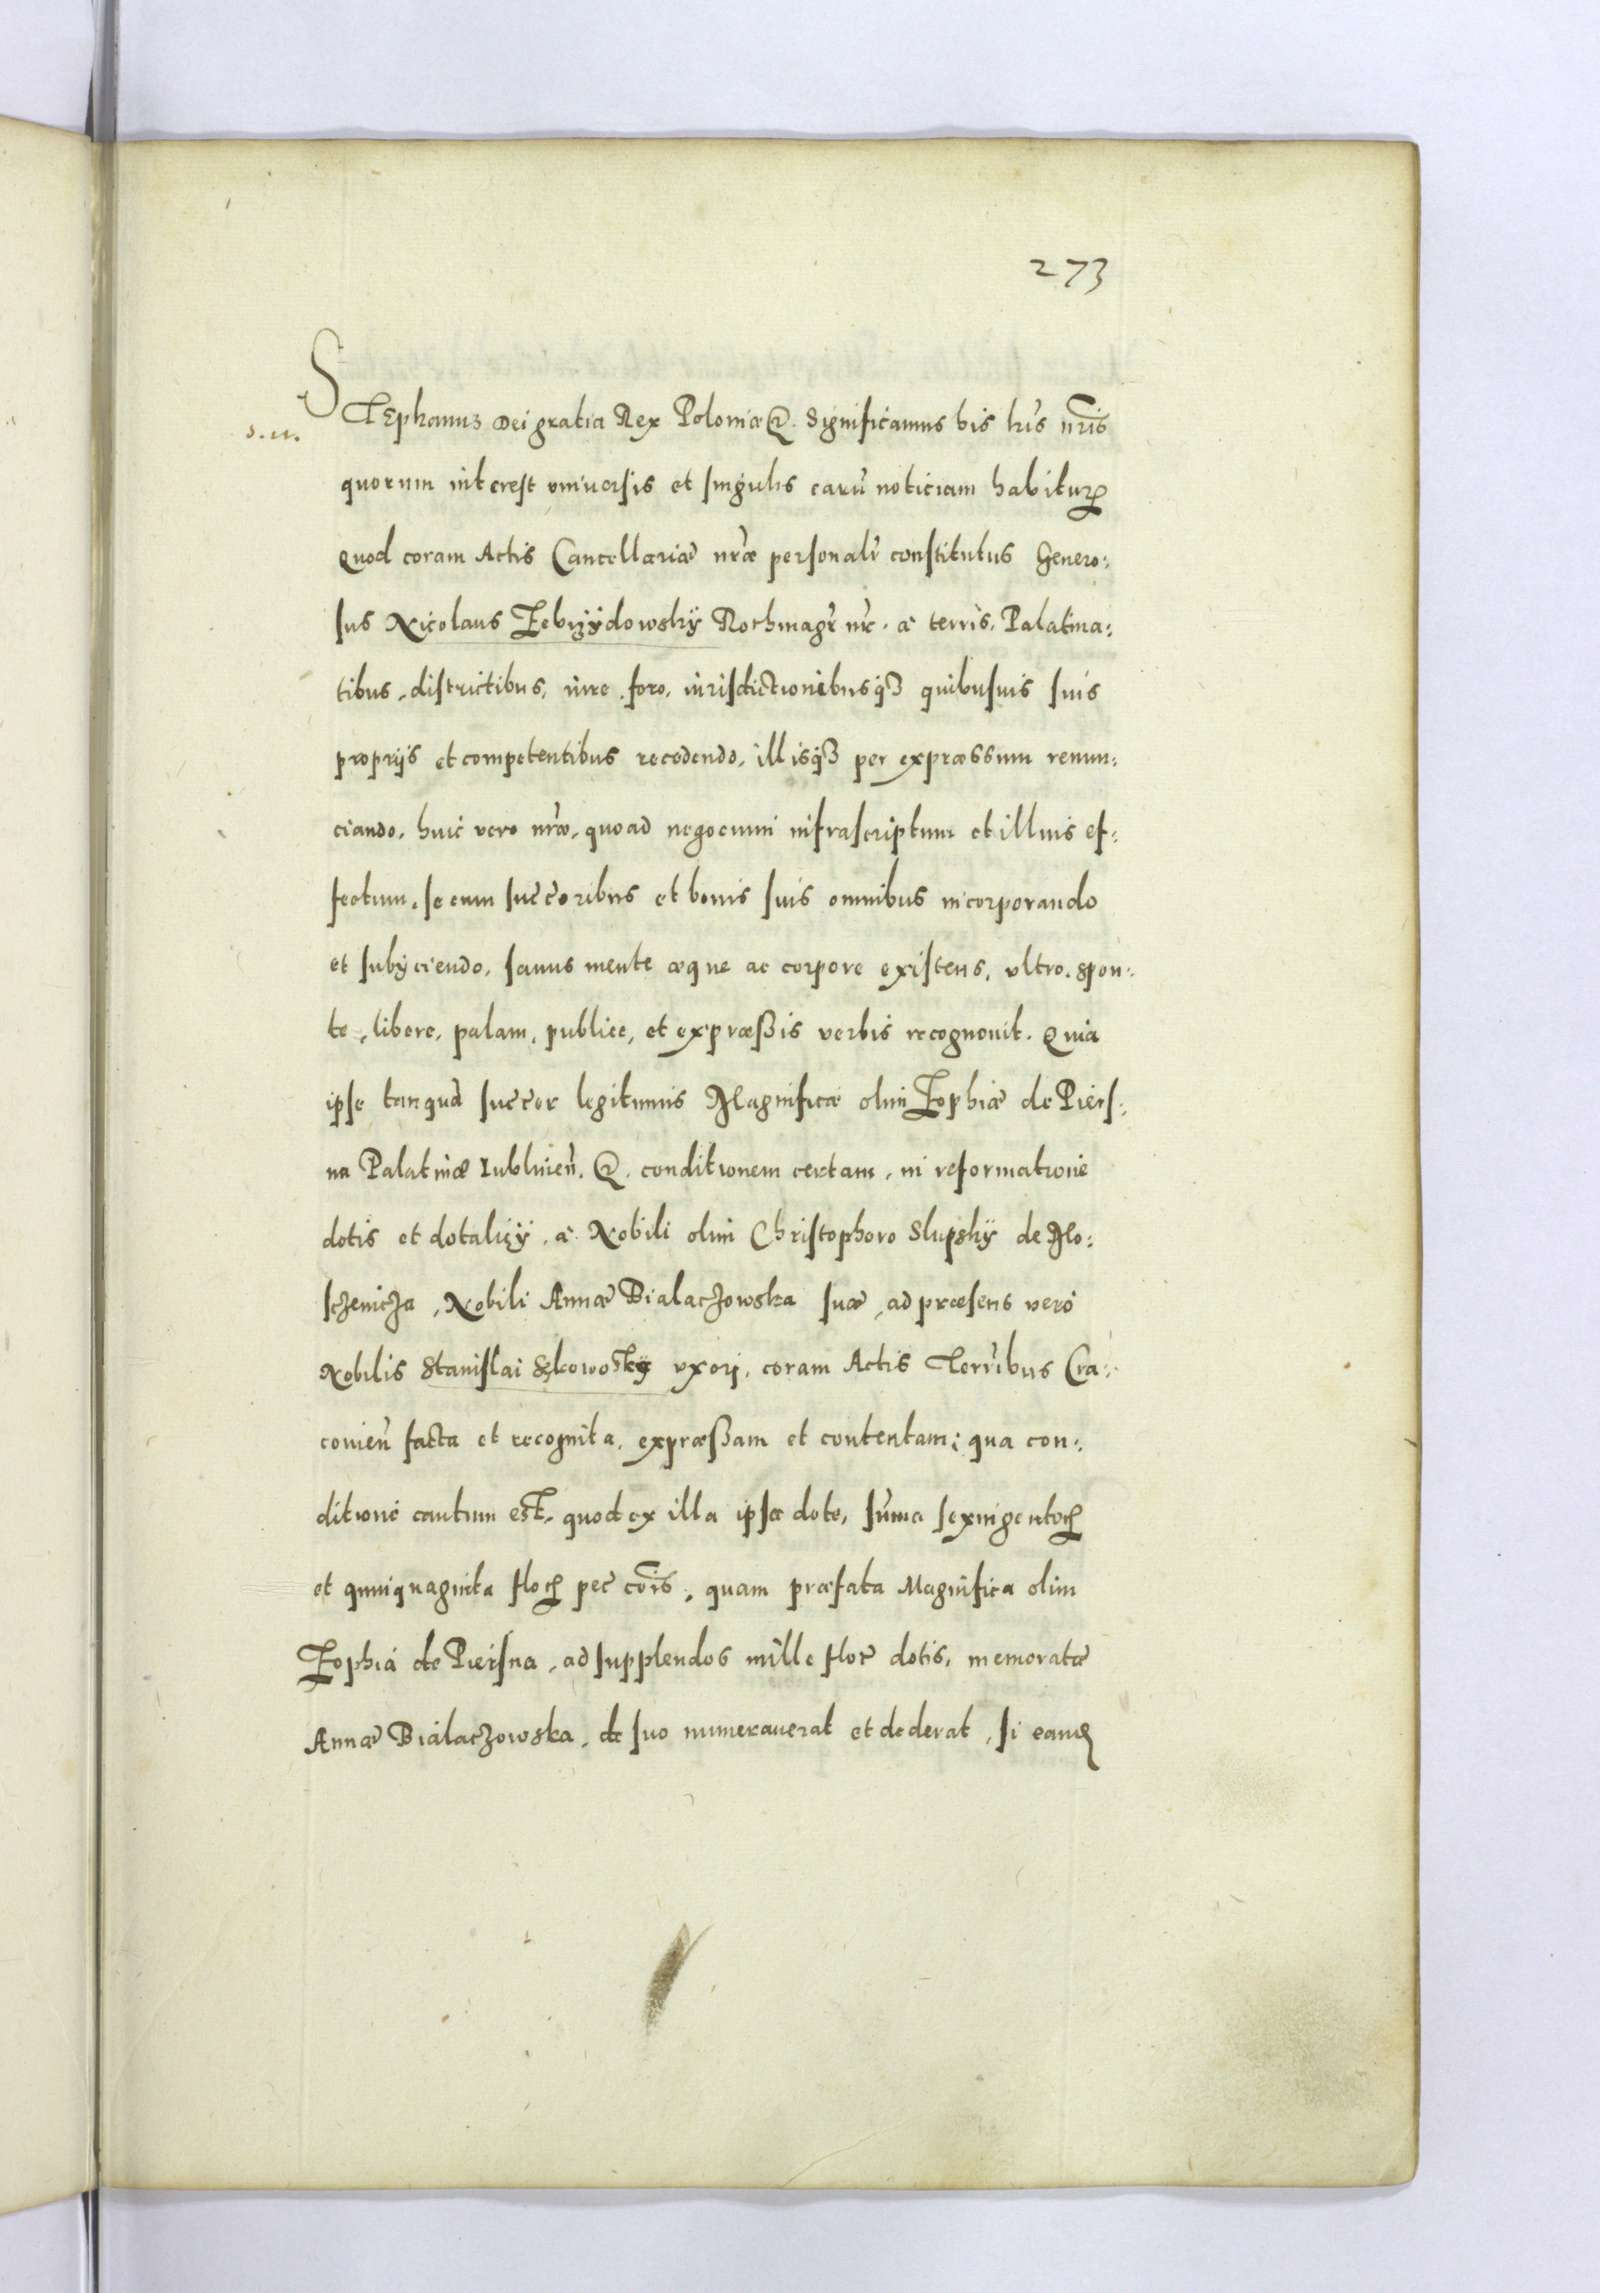 273
STEphanus Dei gratia Rex Poloniæ &. Significamus his lris nris
s. n.
quorum interest vniuersis et singulis earū noticiam habituꝝ
Quod coram Actis Cancellariæ nræ personalr constitutus Genero:
sus Nicolaus Zebrzÿdowskÿ Rothmagr nr. à terris, Palatina:
tibus, districtibus, iure, foro, iurisdictionibusqꝫ quibusuis suis
proprijs et competentibus recedendo, illisqꝫ per expræssum renun:
ciando, huic vero nræ, quoad negocium infrascriptum et illius ef:
fectum, se cum succoribus et bonis suis omnibus incorporando
et subÿciendo, sanus mente æque ac corpore existens, vltro, spon:
te, libere, palam, publice, et expræßis verbis recognouit. Quia
ipse tanquā succor legitimus Magnificæ olim Zophiæ de Piers:
na Palatinæ Lublinien̄. &. conditionem certam, in reformatione
dotis et dotalicÿ, à Nobili olim Christophoro Slupskÿ de Mo:
sczenicza, Nobili Annæ Bialaczowska suæ, ad præsens verò
Nobilis Stanislai uxori, coram Actis Terribus Cra:
couien̄ facta et recognita, expræßam et contentam; qua con:
ditione cautum est, quod ex illa ipsa dote, sum̄a sexingentoꝝ
et quinquaginta floꝝ pec coīs, quam præfata Magnifica olim
Zophia de Piersna, ad supplendos mille flor dotis, memoratæ
Annæ Bialaczowska, de suo numerauerat et dederat, si eandē